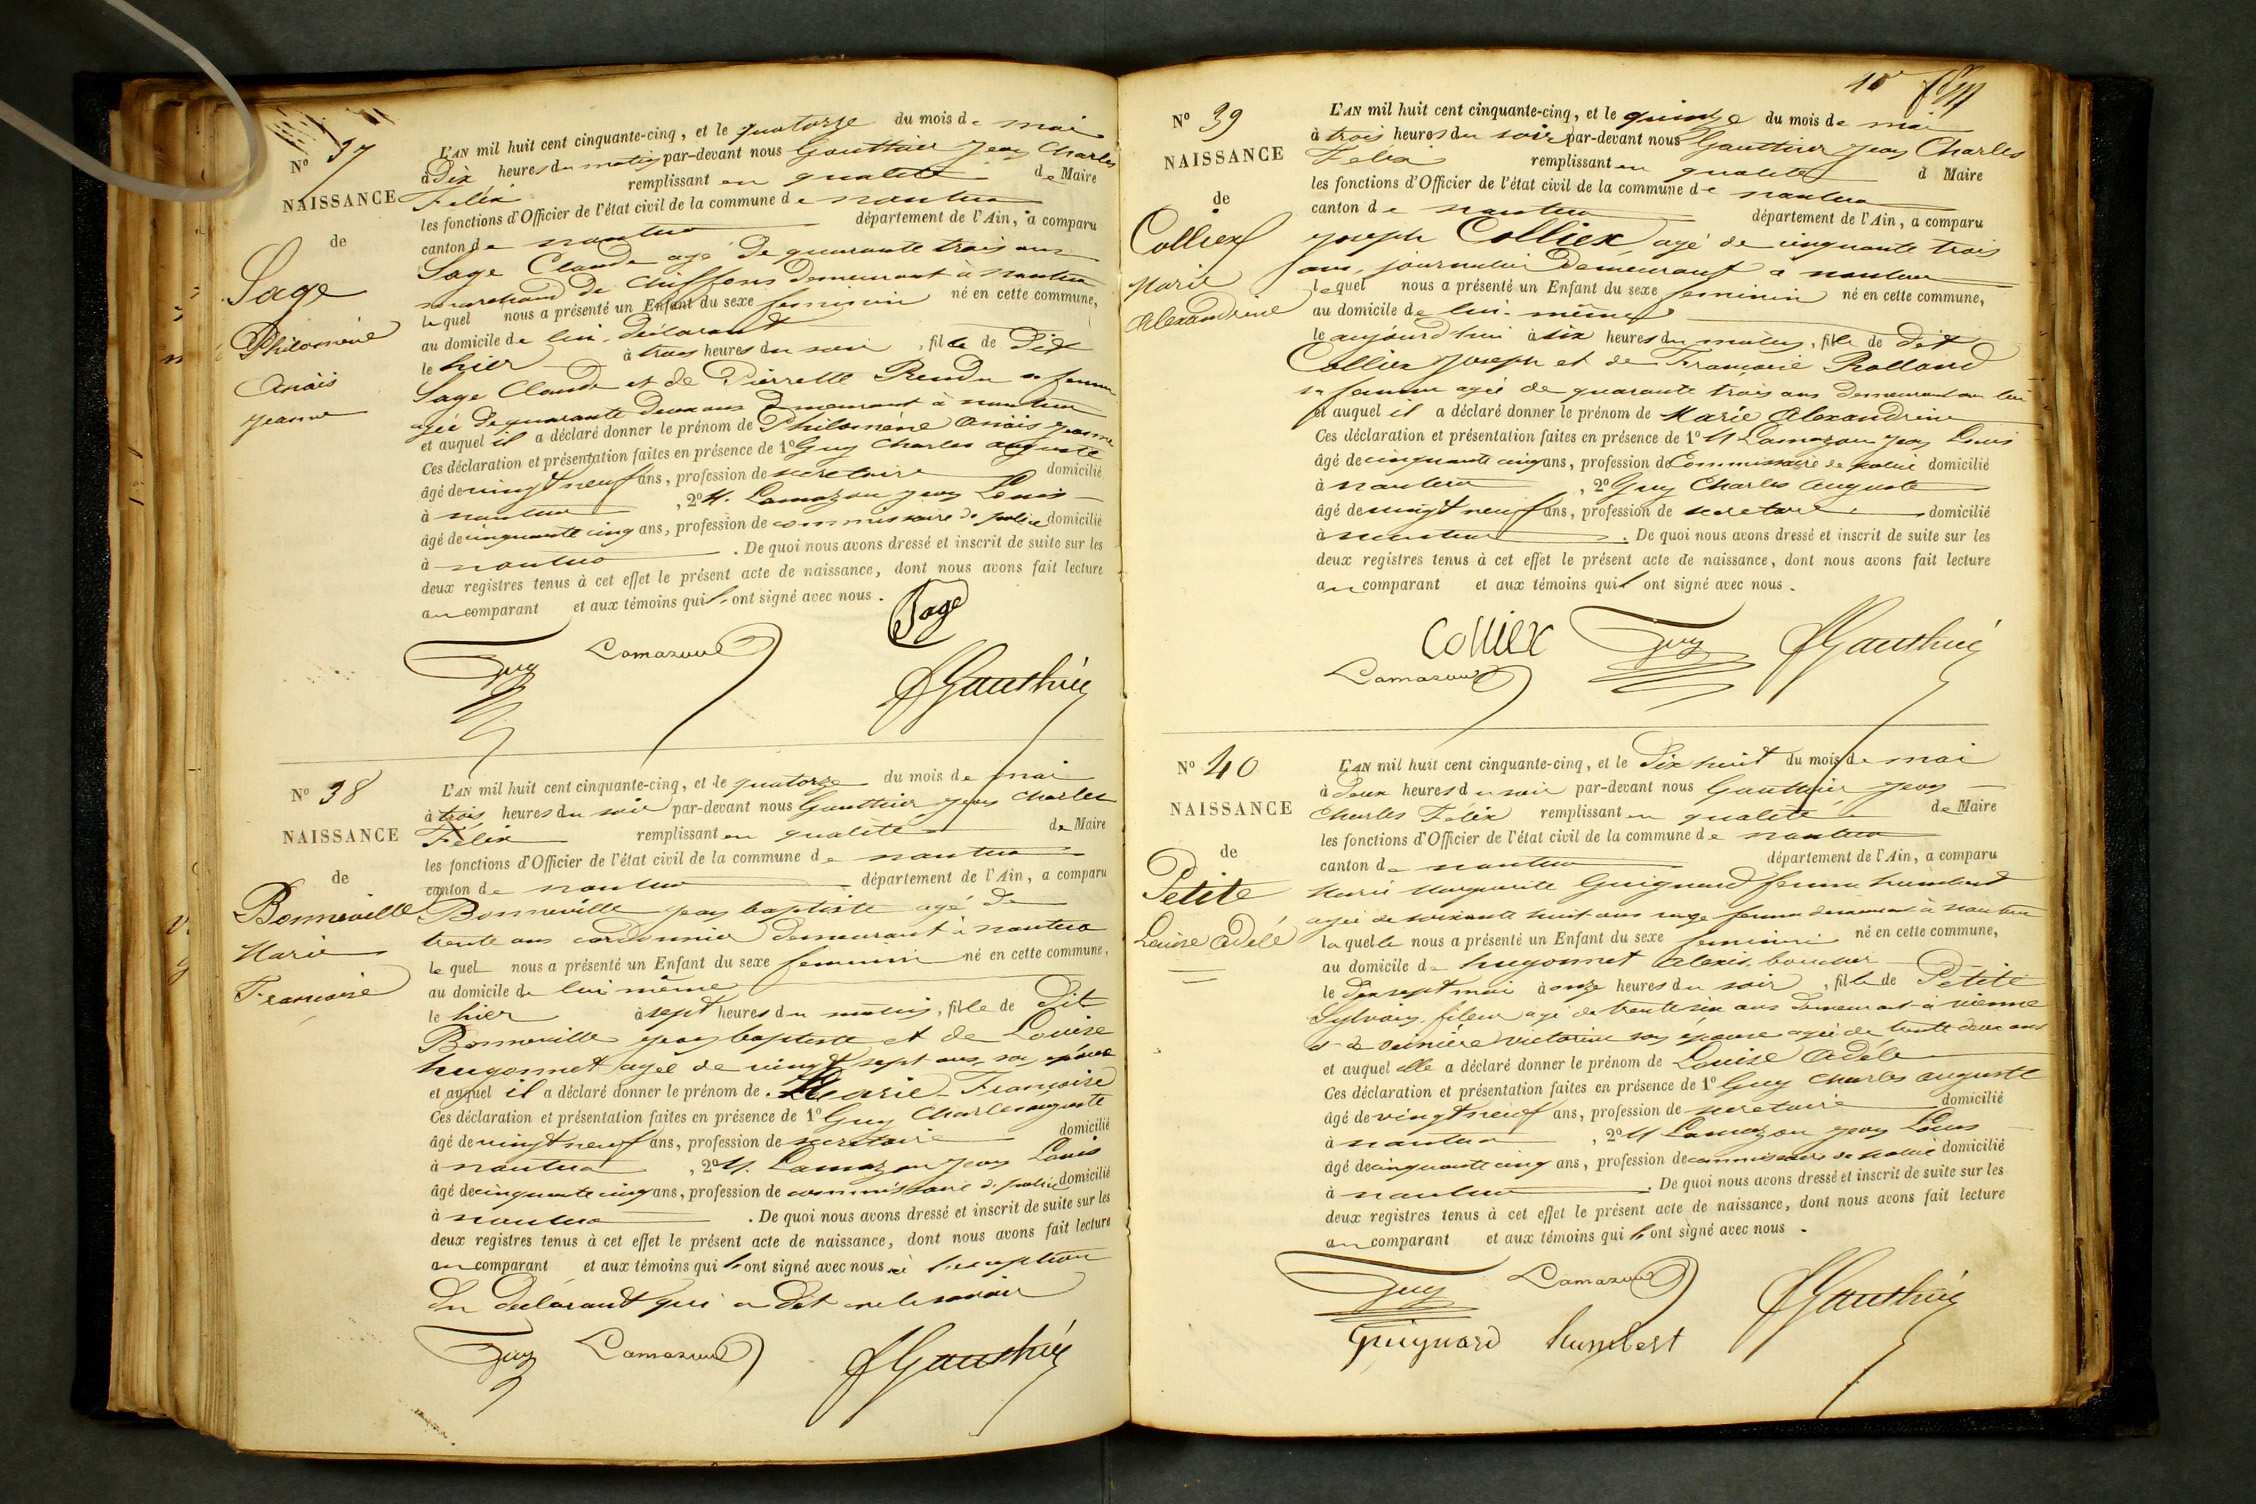 N° 37
NAISSANCE
de
Sage
Philomène
Anaïs
Jeanne
L'AN mil huit cent cinquante-cinq, et le quatorze du mois de mai
à Dix heures du matin par-devant nous Gauthier Jean Charles
Félix remplissant en qualité de Maire
les fonctions d'Officier de l'état civil de la commune de nantua
canton de nantua département de l'Ain, a comparu
Sage Claude agé de quarante trois ans
marchand de chiffons demeurant à nantua
lequel nous a présenté un Enfant du sexe feminin né en cette commune,
au domicile de lui déclarant
le hier à trois heures du soir, fille de Dit
Sage Claude et de Pierrette Rendu sa femme
agée de quarante deux ans demeurant à nantua
et auquel il a déclaré donner le prénom de Philomène Anaïs Jeanne
Ces déclaration et présentation faites en présence de 1° Guy Charles auguste
âgé de vingt neuf ans, profession de secretaire domicilié
à nantua, 2° M. Lamazou jean Louis
âgé de cinquante cinq ans, profession de commissaire de police domicilié
à nantua. De quoi nous avons dressé et inscrit de suite sur les
deux registres tenus à cet effet le présent acte de naissance, dont nous avons fait lecture
au comparant et aux témoins qui l'ont signé avec nous.
Sage
Guy Lamazou
JGauthier
N° 38
NAISSANCE
de
Bonneville
Marie
Francoise
L'AN mil huit cent cinquante-cinq, et le quatorze du mois de mai
à trois heures du soir par-devant nous Gauthier jean Charles
Félix remplissant en qualité de Maire
les fonctions d'Officier de l'état civil de la commune de nantua
canton de nantua département de l'Ain, a comparu
Bonneville jean baptiste agé de
trente ans cordonnier demeurant à nantua
lequel nous a présenté un Enfant du sexe feminin né en cette commune,
au domicile de lui même
le hier à sept heures du matin, fille de Dit
Bonneville jean baptiste et de Louise
hugonnet agée de vingt sept ans, son épouse
et auquel il a déclaré donner le prénom de Marie-Françoise
Ces déclaration et présentation faites en présence de 1° Guy Charles auguste
âgé de vingt neuf ans, profession de secretaire domicilié
à nantua, 2° M. Lamazou jean Louis
âgé de cinquante cinq ans, profession de commissaire de police domicilié
à nantua. De quoi nous avons dressé et inscrit de suite sur les
deux registres tenus à cet effet le présent acte de naissance, dont nous avons fait lecture
au comparant et aux témoins qui l'ont signé avec nous à l'exception
du déclarant qui a dit ne le savoir
Guy Lamazou JGauthier
40
N° 39
NAISSANCE
de
Colliex
Marie
Alexandrine
L'AN mil huit cent cinquante-cinq, et le quinze du mois de mai
à trois heures du soir par-devant nous Gauthier jean Charles
Félix remplissant en qualité d Maire
les fonctions d'Officier de l'état civil de la commune de nantua
canton de nantua département de l'Ain, a comparu
joseph Colliex, agé de cinquante trois
ans, journalier demeurant à nantua
lequel nous a présenté un Enfant du sexe feminin né en cette commune,
au domicile de lui-même
le aujourd'hui à six heures du matin, fille de Dit
Colliex Joseph et de Françoise Rolland
sa femme agée de quarante trois ans demeurant au lui
et auquel il a déclaré donner le prénom de Marie Alexandrine
Ces déclaration et présentation faites en présence de 1° M Lamazou jean Louis
âgé de cinquante cinq ans, profession de Commissaire de police domicilié
à nantua, 2° Guy Charles Auguste
âgé de vingt neuf ans, profession de secretaire domicilié
à nantua. De quoi nous avons dressé et inscrit de suite sur les
deux registres tenus à cet effet le présent acte de naissance, dont nous avons fait lecture
au comparant et aux témoins qui l'ont signé avec nous.
Colliex Guy JGauthier
Lamazou
N° 40
NAISSANCE
de
Petite
Louise Adèle
L'AN mil huit cent cinquante-cinq, et le Dix huit du mois de mai
à Deux heures du soir par-devant nous Gauthier jean
Charles Félix remplissant en qualité de Maire
les fonctions d'Officier de l'état civil de la commune de nantua
canton de nantua département de l'Ain, a comparu
Marie Marguerite Guignard femme humbert
agée de soixante huit ans sage femme demeurant à nantua
laquelle nous a présenté un Enfant du sexe feminin né en cette commune,
au domicile de hugonnet Alexis, boucher
le dix sept mai à onze heures du soir, fille de Petite
Sylvain, fileur agé de trente six ans demeurant à vienne
et de victorine son épouse agée de trente deux ans
et auquel elle a déclaré donner le prénom de Louise Adèle
Ces déclaration et présentation faites en présence de 1° Guy Charles auguste
âgé de vingt neuf ans, profession de secretaire domicilié
à nantua, 2° M Lamazou jean Louis
âgé de cinquante cinq ans, profession de commissaire de police domicilié
à nantua. De quoi nous avons dressé et inscrit de suite sur les
deux registres tenus à cet effet le présent acte de naissance, dont nous avons fait lecture
au comparant et aux témoins qui l'ont signé avec nous.
Guy Lamazou JGauthier
Guignard humbert